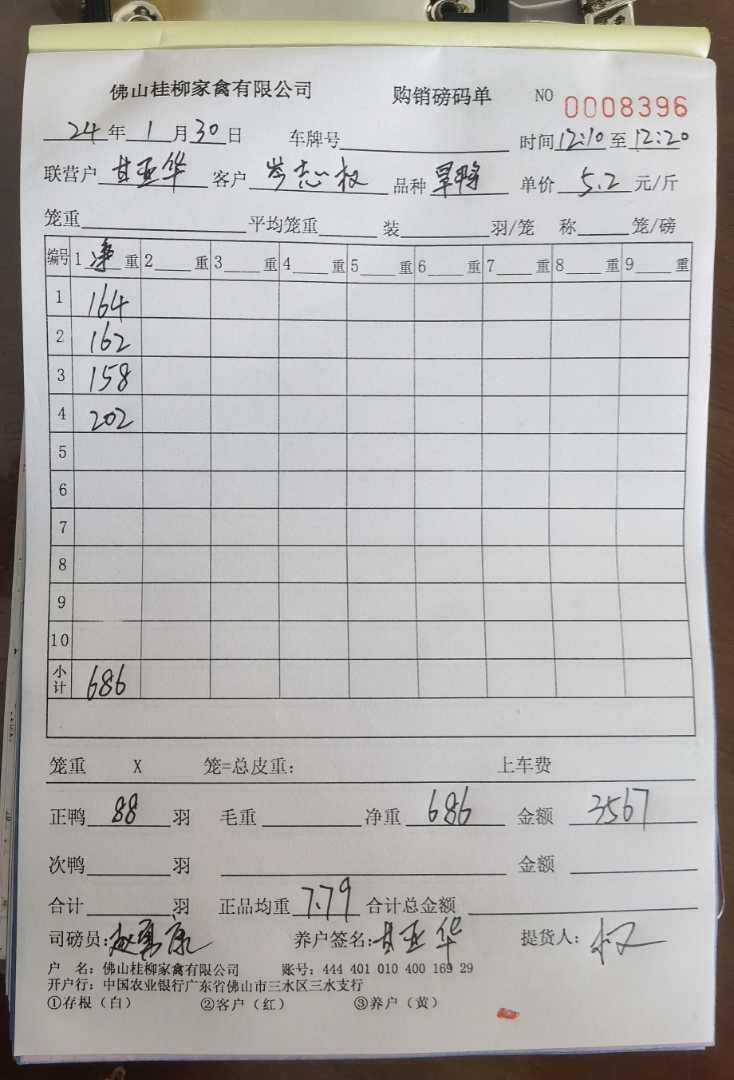 佛山桂柳家禽有限公司 购销磅码单 NO 0008396
24年1月30日 车牌号 时间12:10至12:20
联营户甘亚华 客户岑志权 品种旱鸭 单价5.2元/斤
笼重 平均笼重 装 羽/笼 称 笼/磅
编号 1净重 2重 3重 4重 5重 6重 7重 8重 9重
1 164
2 162
3 158
4 202
5
6
7
8
9
10
小计 686
笼重 X 笼=总皮重: 上车费
正鸭88羽 毛重 净重686 金额3567
次鸭 羽 金额
合计 羽 正品均重7.79 合计总金额
司磅员:赵勇康 养户签名:甘亚华 提货人:权
户 名: 佛山桂柳家禽有限公司 账号: 444 401 010 400 169 29
开户行: 中国农业银行广东省佛山市三水区三水支行
①存根(白) ②客户(红) ③养户(黄)